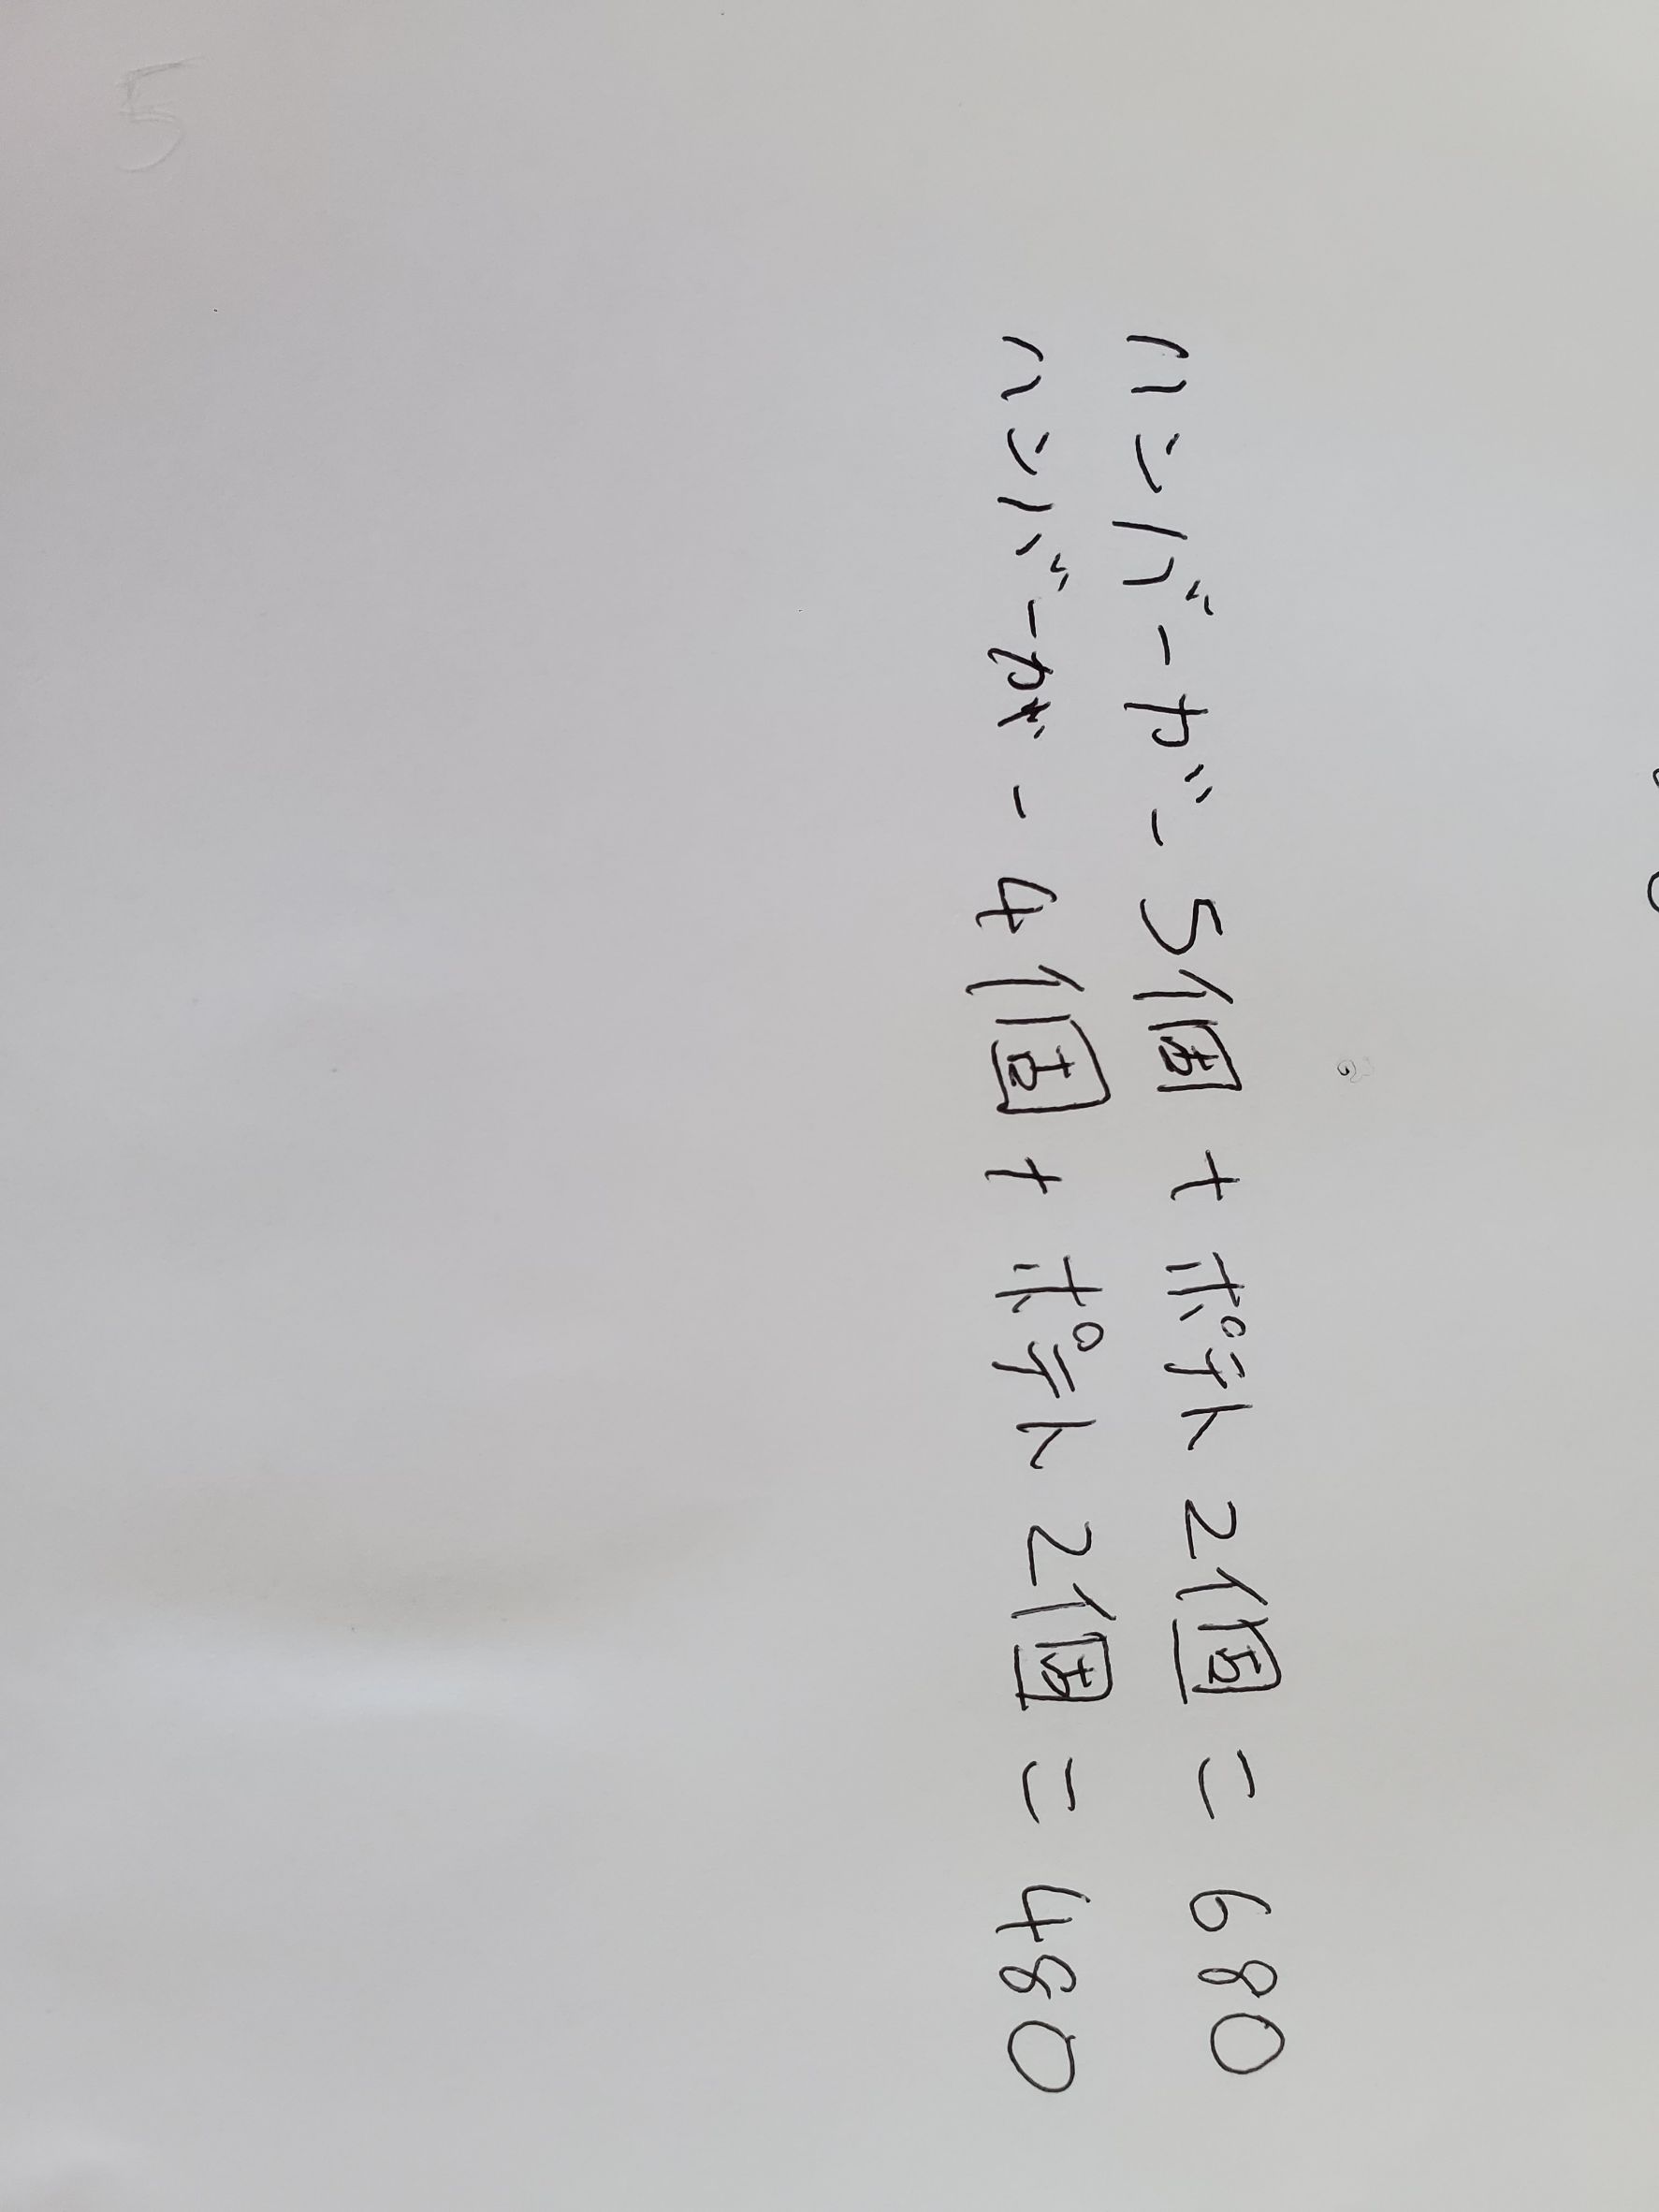 ハンバーガー5個 + ポテト2個 = 680
ハンバーガー4個 + ポテト2個 = 480
5